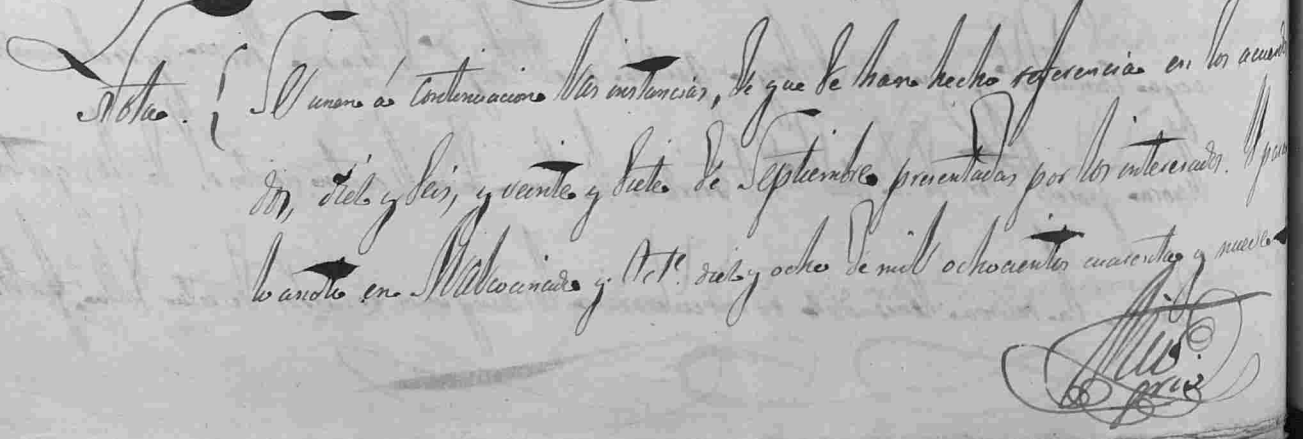 Nota. Se unen á continuacion las instancias, de que se han hecho referencia en los acuerdos
dos, diez y seis, y veinte y siete de Septiembre presentadas por los interesados. Y para
lo anoto en Malcocinado y Oct.e diez y ocho de mil ochocientos cuarenta y nueve